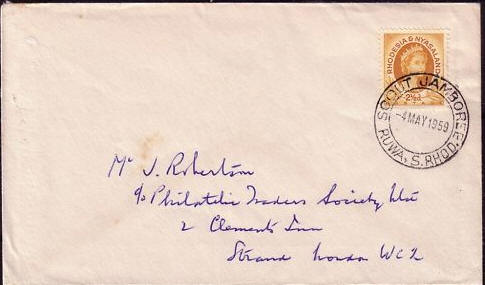 RHODESIA & NYASALAND
2½d
SCOUT JAMBOREE
-4 MAY 1959
RUWA, S. RHOD.
Mr J. Robertson
c/o Philatelic Traders Society Ltd
2 Clements Inn
Strand London WC2